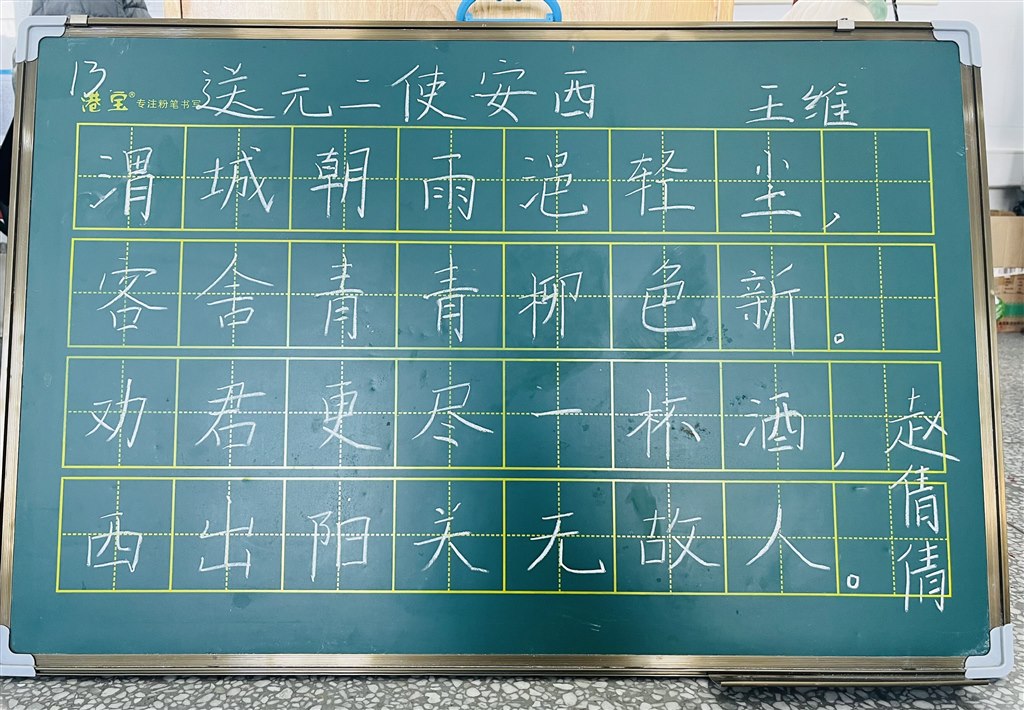 13 送元二使安西 王维
港宝® 专注粉笔书写
渭城朝雨浥轻尘,
客舍青青柳色新。
劝君更尽一杯酒,
西出阳关无故人。
赵倩倩